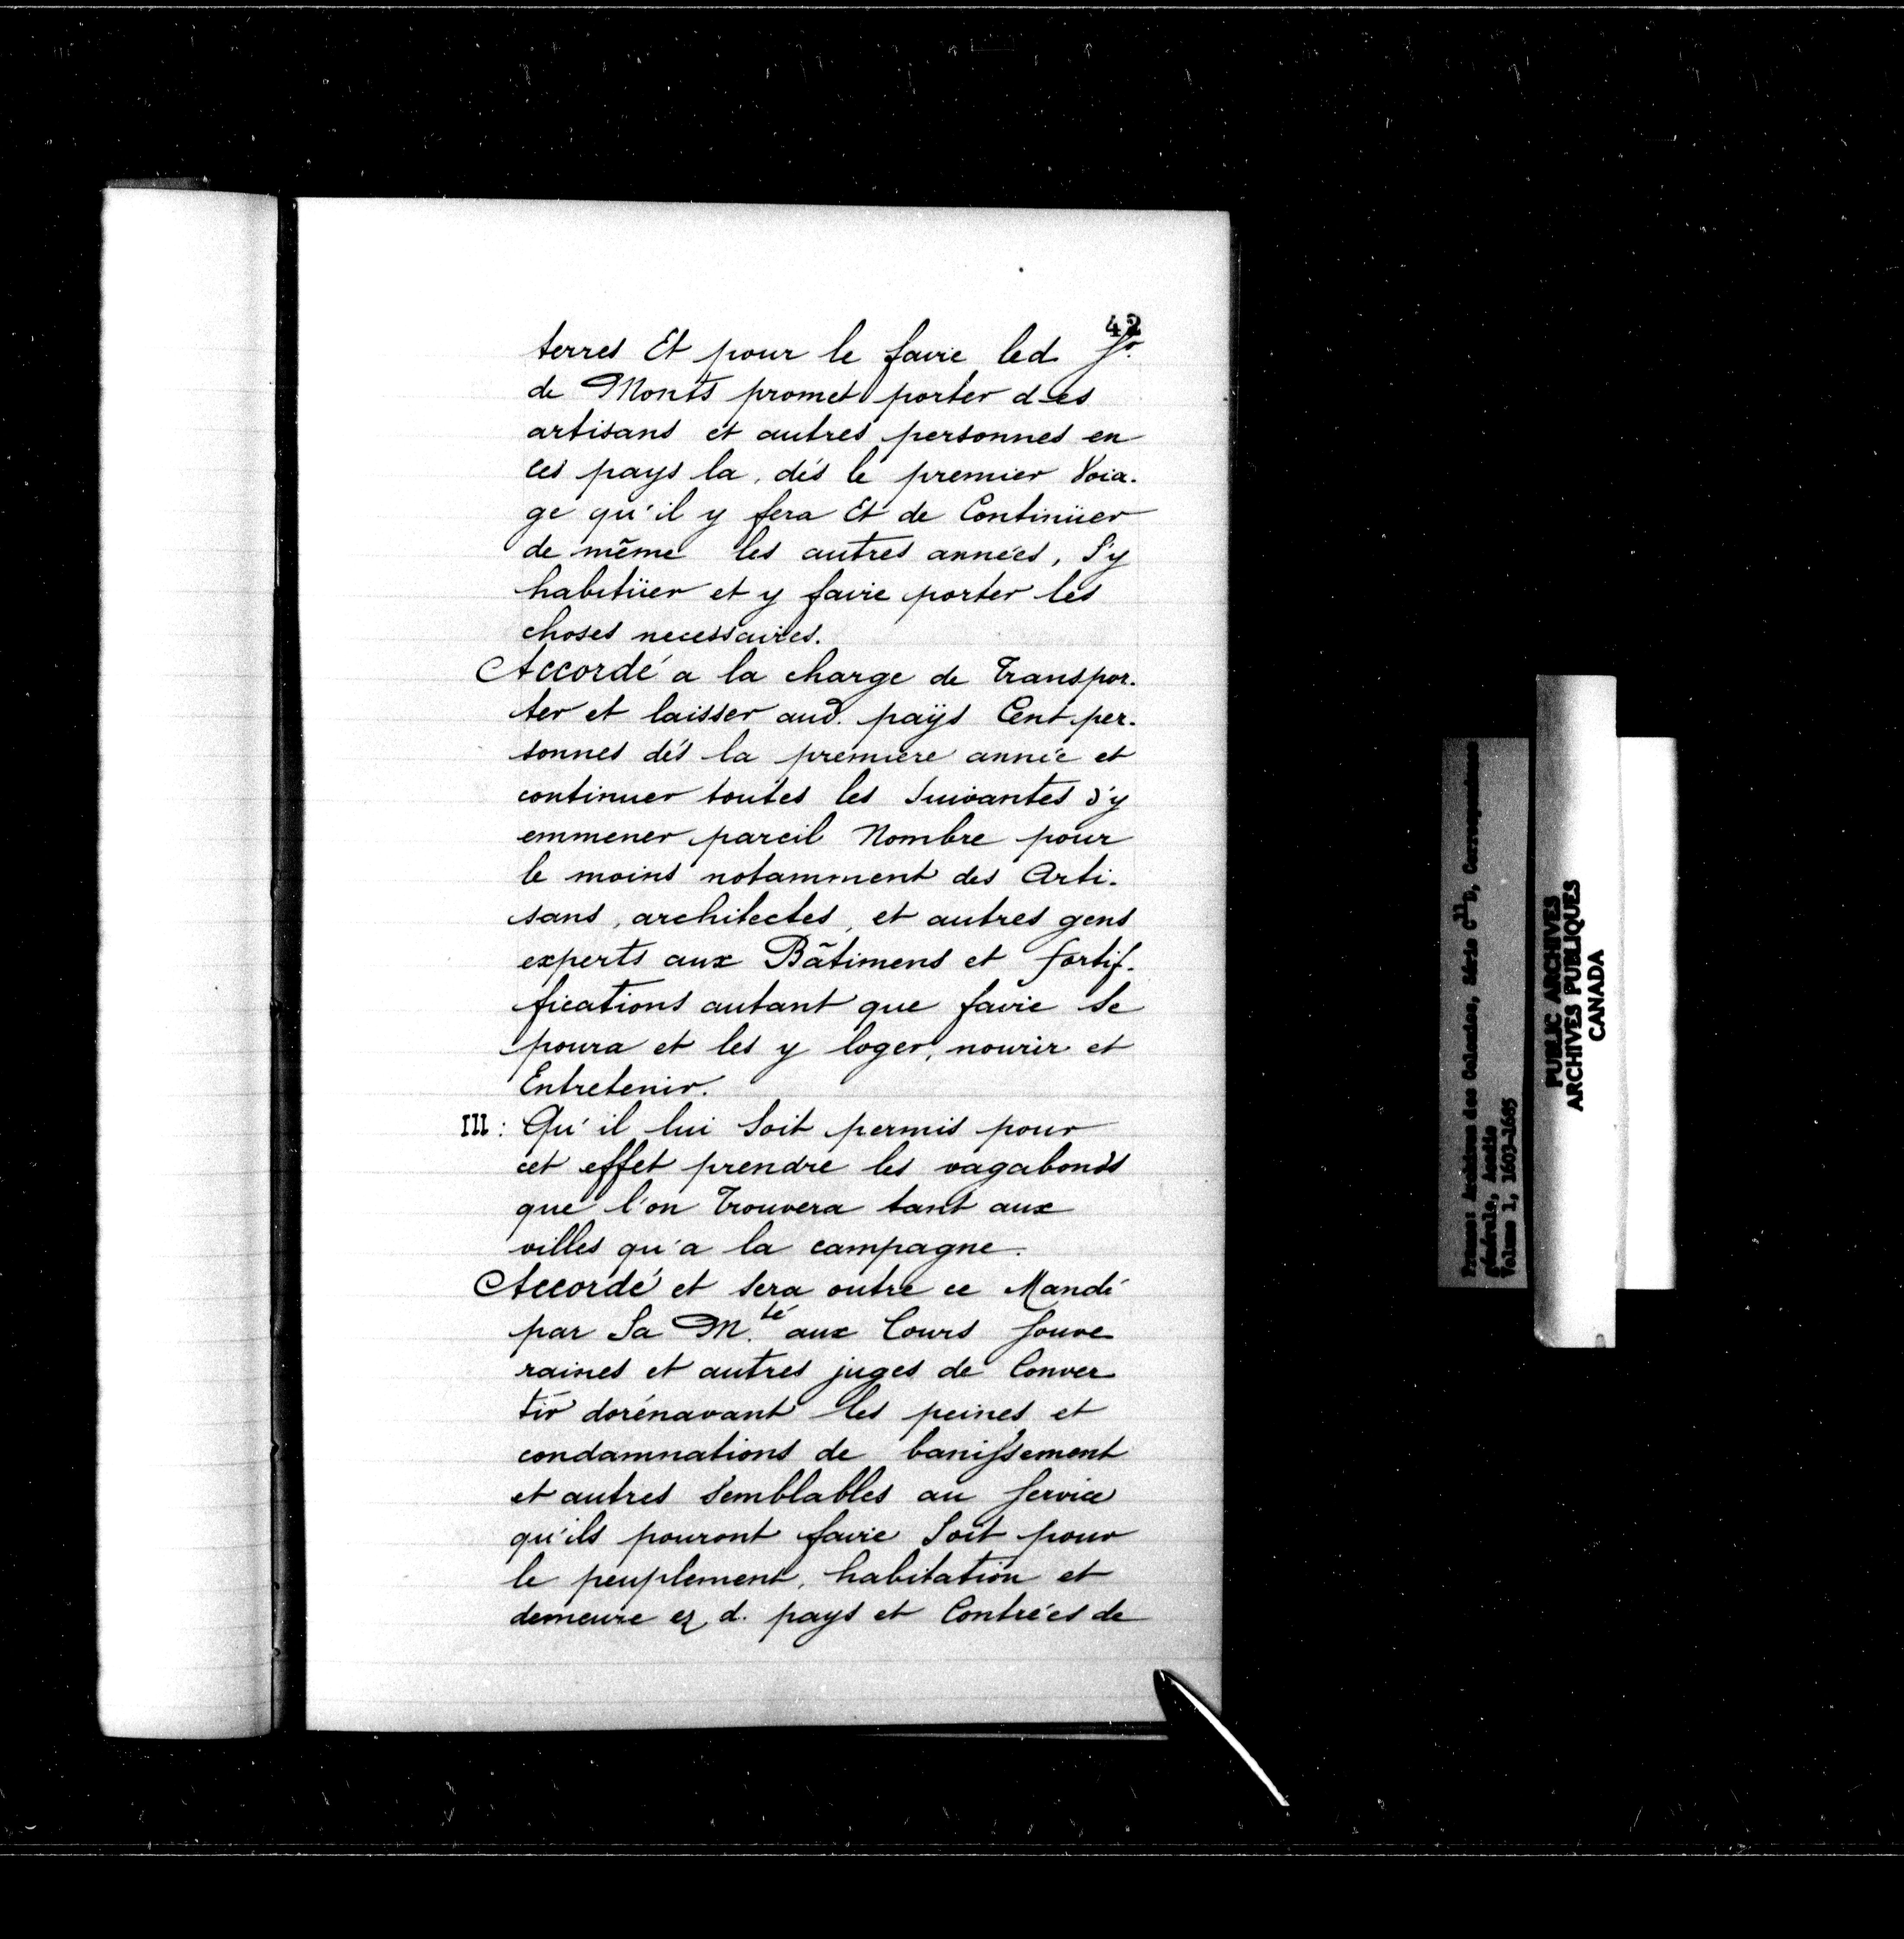 42
terres Et pour le faire led. Sr.
de Monts promet porter des
artisans et autres personnes en
ces pays la, dés le premier Voia-
ge qu'il y fera Et de Continüer
de même les autres années, S'y
habitüer et y faire porter les
choses necessaires.
Accordé a la charge de Transpor-
ter et laisser aud. païs Cent per-
sonnes dés la premiere année et
continuer toutes les Suivantes d'y
emmener pareil Nombre pour
le moins notamment des Arti-
sans, architectes, et autres gens
experts aux Bâtimens et fortif-
fications autant que faire Se
poura et les y loger, nourir et
Entretenir.
III: Qu'il lui Soit permis pour
cet effet prendre les vagabonds
que l'on Trouvera tant aux
villes qu'a la campagne.
Accordé et sera outre ce Mandé
par Sa M.té aux Cours Souve
raines et autres juges de Conver
tir dorénavant les peines et
condamnations de banissement
et autres Semblables au Service
qu'ils pouront faire Soit pour
le peuplement, habitation et
demeure ez d. pays et Contrées de
France: Archives des Colonies, Série C11D, Correspondance
générale, Acadie
Volume 1, 1603-1685
PUBLIC ARCHIVES
ARCHIVES PUBLIQUES
CANADA